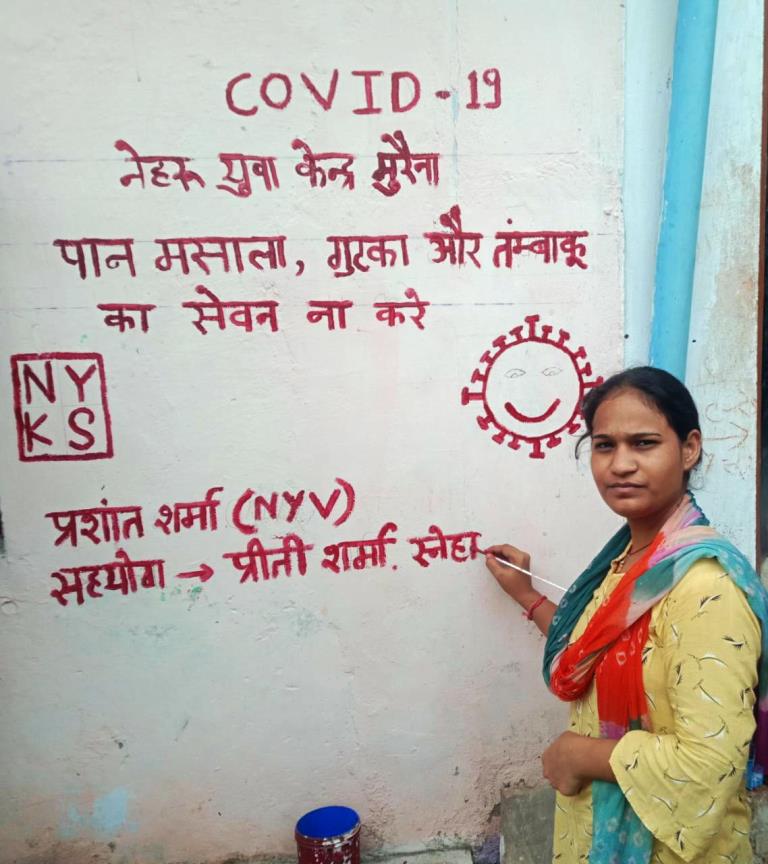 COVID-19
नेहरू युवा केन्द्र मुरैना
पान मसाला, गुटका और तंम्बाकू
का सेवन ना करे
NY
KS
प्रशांत शर्मा (NYV)
सहयोग → प्रीती शर्मा. स्नेहा